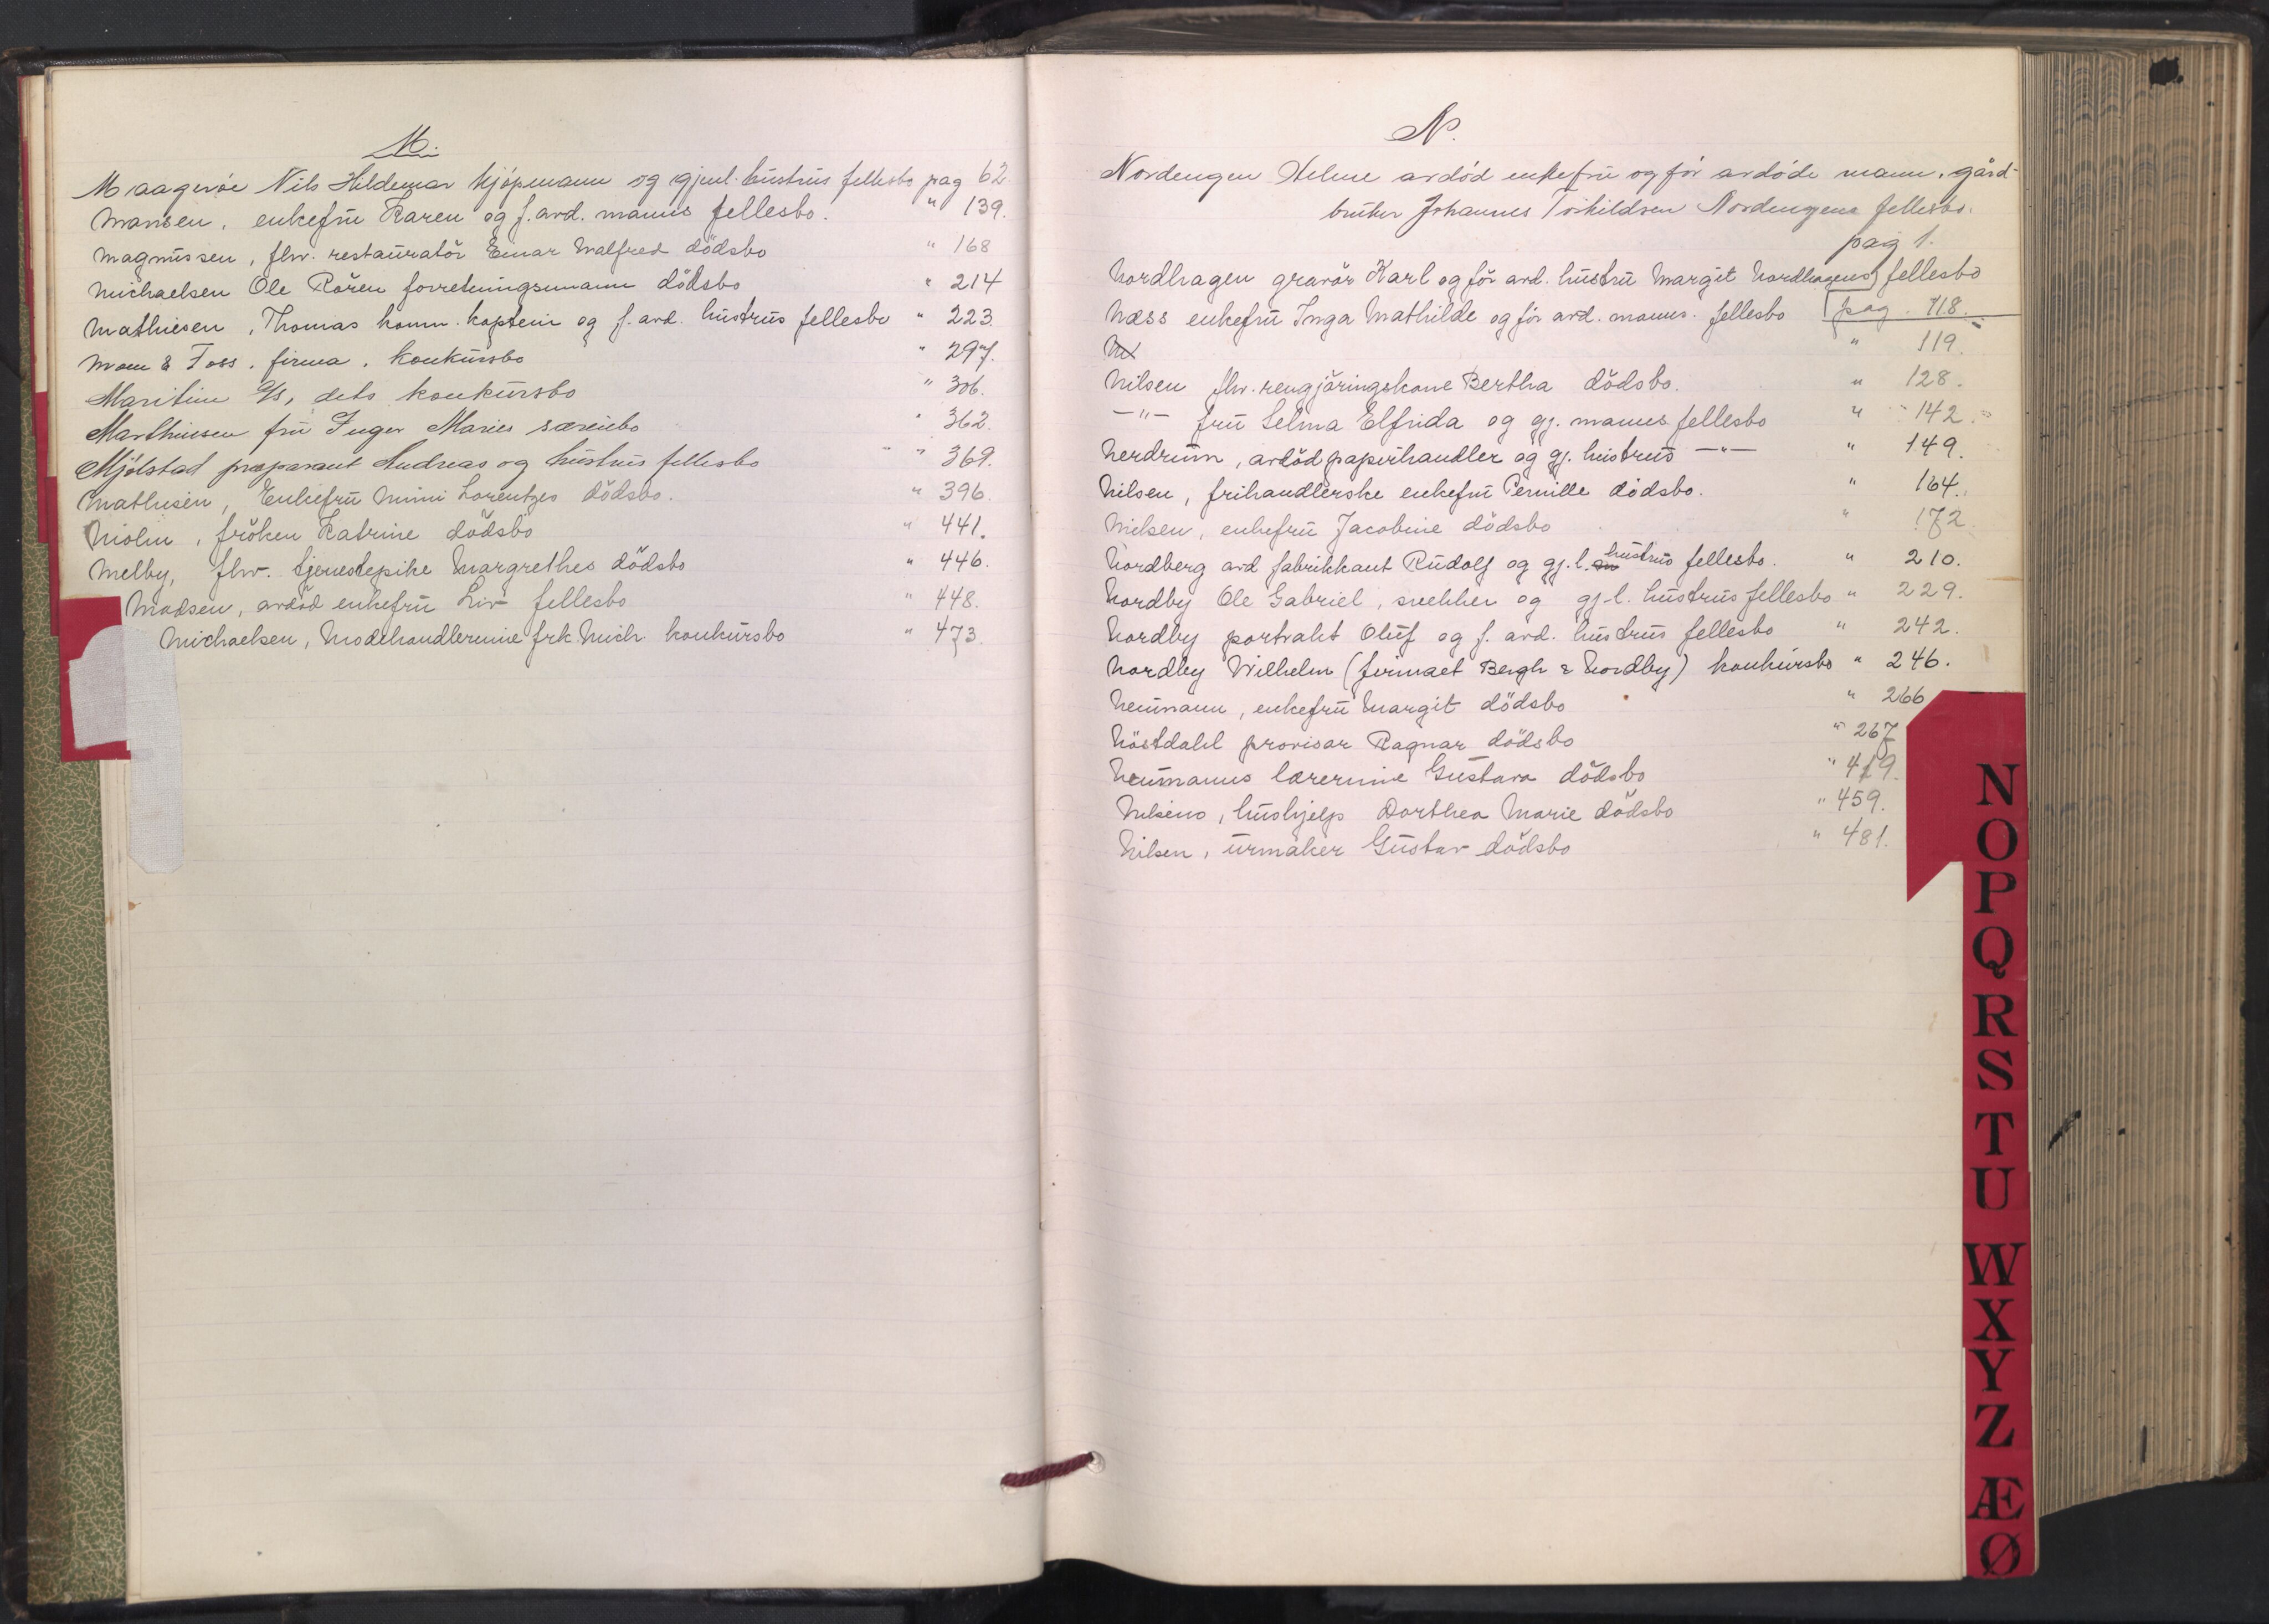 M.
Maagerøe Nils Hildemar kjöpmann og gjenl. hustrus fellesbo pag 62
Mansen, enkefru Karen og f. avd. manns fellesbo. " 139.
Magnussen, fhv. restauratör Einar Walfred dödsbo " 168
Michaelsen Ole Rören forretningsmann dödsbo " 214
Mathiesen, Thomas komm. kaptein og f. avd. hustrus fellesbo " 223.
Moum & Foss, firma, konkursbo " 297.
Maritim A/S, dets konkursbo " 306.
Marthinsen fru Inger Maries særeiebo " 362.
Mjölstad preparant Andreas og hustrus fellesbo " 369.
Mathisen, Enkefru Mimi Lorentzes dödsbo. " 396.
Molin, fröken Katrine dödsbo " 441.
Melby, fhv. tjenestepike Margrethes dödsbo " 446.
Madsen, avdöd enkefru Liv fellesbo " 448.
Michaelsen, Modehandlerinne frk. Mich. konkursbo " 473.
N.
Nordengen Helene avdöd enkefru og för avdöde mann, gård-
bruker Johannes Torkildsen Nordengens fellesbo.
pag 1.
Nordhagen gravör Karl og för avd. hustru Margit Nordhagens fellesbo
Næss enkefru Inga Mathilde og för avd. manns. fellesbo pag. 118.
" 119.
Nilsen fhv. rengjöringskone Bertha dödsbo. " 128.
—"— fru Selma Elfrida og gj. manns fellesbo " 142.
Nerdrum, avdöd papirhandler og gj. hustrus —"— " 149.
Nilsen, frihandlerske enkefru Pernille dödsbo. " 164.
Nielsen, enkefru Jacobine dödsbo " 172
Nordberg avd fabrikkant Rudolf og gj. l. hustrus fellesbo. " 210.
Nordby Ole Gabriel, snekker og gj. l. hustrus fellesbo " 229.
Nordby portrakt Oluf og f. avd. hustrus fellesbo " 242.
Nordby Wilhelm (firmaet Bergh & Nordby) konkursbo " 246.
Neumann, enkefru Margit dödsbo " 266
Nöstdahl provisor Ragnar dödsbo " 267
Neumanns lærerinne Gustava dödsbo " 419.
Nilsens, hushjelp Dorthea Marie dödsbo " 459.
Nilsen, urmaker Gustav dödsbo " 481.
N
O
P
Q
R
S
T
U
W
X
Y
Z
Æ
Ø